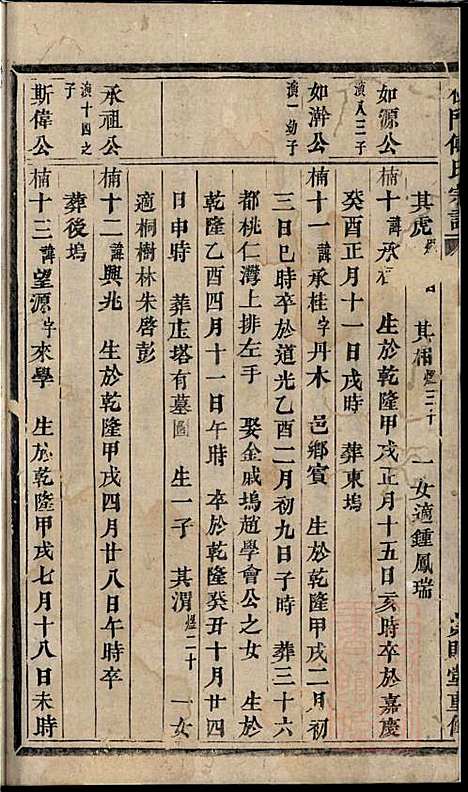 其虎 其相 一女適鍾鳳瑞
如源公
演八三子
楠十 諱承 生於乾隆甲戌正月十五日亥時卒於嘉慶
癸酉正月十一日戌時 葬東塢
如澣公
演一幼子
楠十一 諱承桂 字丹木 邑鄉賓 生於乾隆甲戌二月初
三日巳時卒於道光乙酉二月初九日子時 葬三十六
都桃仁灣上排左手 娶金戚塢趙學會公之女 生於
乾隆乙酉四月十一日午時 卒於乾隆癸丑十月廿四
日申時 葬庄塔有墓圖 生一子 其渭 煜二十 一女
適桐樹林朱啓彭
承祖公
演十四之子
楠十二 諱興兆 生於乾隆甲戌四月廿八日午時卒
葬後塢
斯偉公
楠十三 諱望源 字來學 生於乾隆甲戌七月十八日未時